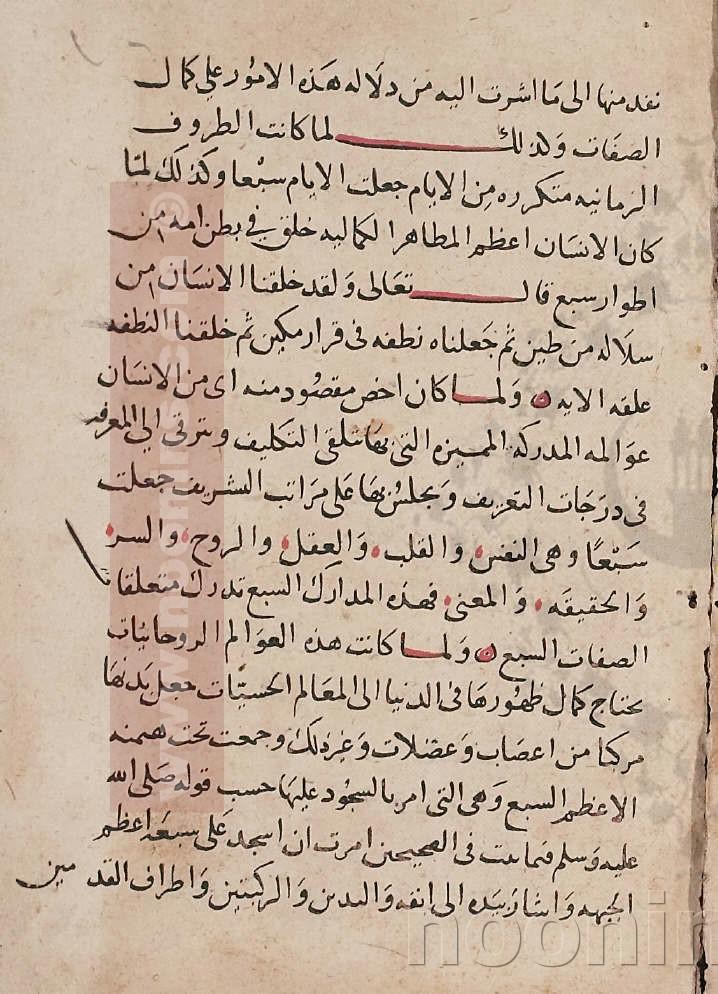 نفد منها الى ما اشرت اليه من دلاله هذه الامور على كمال
الصفات ولذلك لما كانت الظروف
الزمانيه متكرره من الايام جعلت الايام سبعا وكذلك لما
كان الانسان اعظم المظاهر الكماليه خلق في بطن امه من
اطوار سبع قال تعالى ولقد خلقنا الانسان من
سلاله من طين ثم جعلناه نطفه في قرار مكين ثم خلقنا النطفه
علقه الايه ولما كان اخص مقصود منه اى من الانسان
عوالمه المدركه المميزه التى بها تتلقى التكليف ويترقى الى المعرفه
فى درجات التعريف ويجلس بها على مراتب التشريف جعلت
سبعا وهى النفس والقلب والعقل والروح والسر
والحقيقه والمعنى فهذه المدارك السبع تدرك متعلقات
الصفات السبع ولما كانت هذه العوالم الروحانيات
يحتاج كمال ظهورها فى الدنيا الى المعالم الحسيات جعل بدنها
مركبا من اعصاب وعضلات وغير ذلك وجمعت تحت همنه
الاعظم السبع وهى التى امر بالسجود عليها حسب قوله صلى الله
عليه وسلم فيما ثبت فى الصحيحين امرت ان اسجد على سبعه اعظم
الجبهه واشار بيده الى انفه واليدين والركبتين واطراف القدمين
www.noonin
noonin